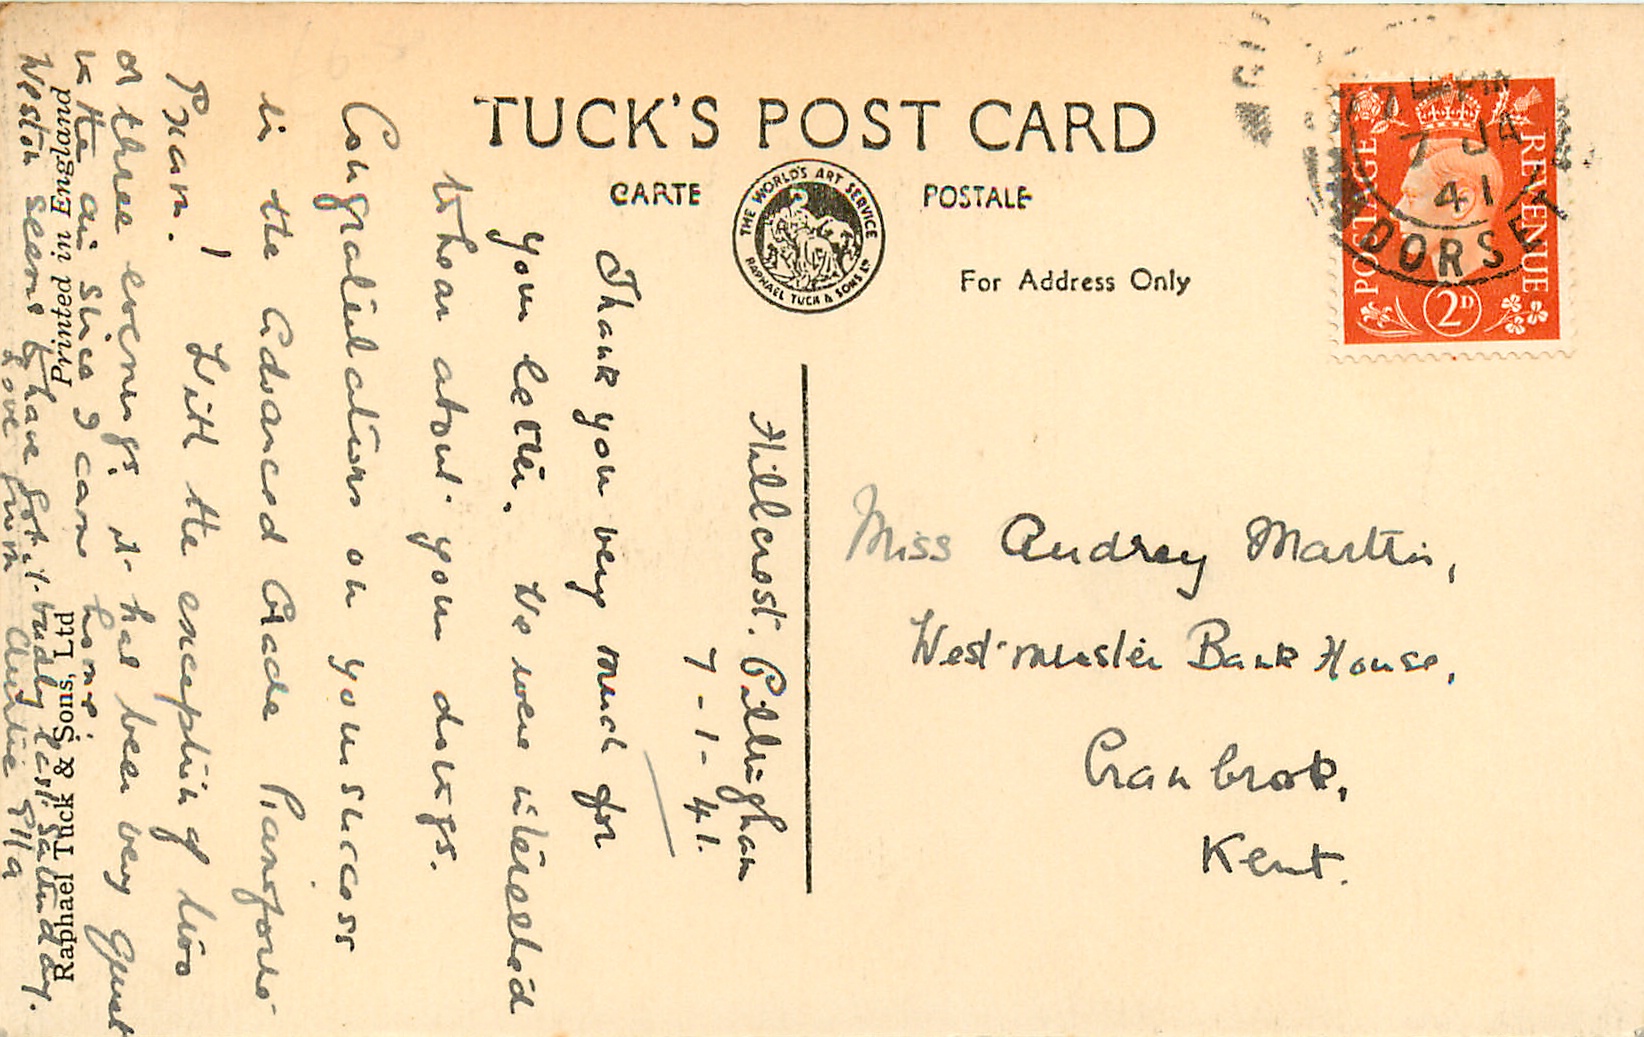 TUCK'S POST CARD
CARTE POSTALE
THE WORLD'S ART SERVICE
RAPHAEL TUCK & SONS LTD
For Address Only
POSTAGE REVENUE
2D
7 JA
41
DORSET
Miss Audrey Martin,
Westminster Bank House,
Cranbrook,
Kent.
Hillcrest. Gillingham
7-1-41.
Thank you very much for
your letter. We were interested
to hear about your doings.
Congratulations on your success
in the Advanced Grade Pianoforte
Exam. With the exception of two
or three evenings it has been very quiet
in the air since I came home.
Weston seems to have got it badly last Saturday.
Love from Auntie Ella
Printed in England
Raphael Tuck & Sons, Ltd